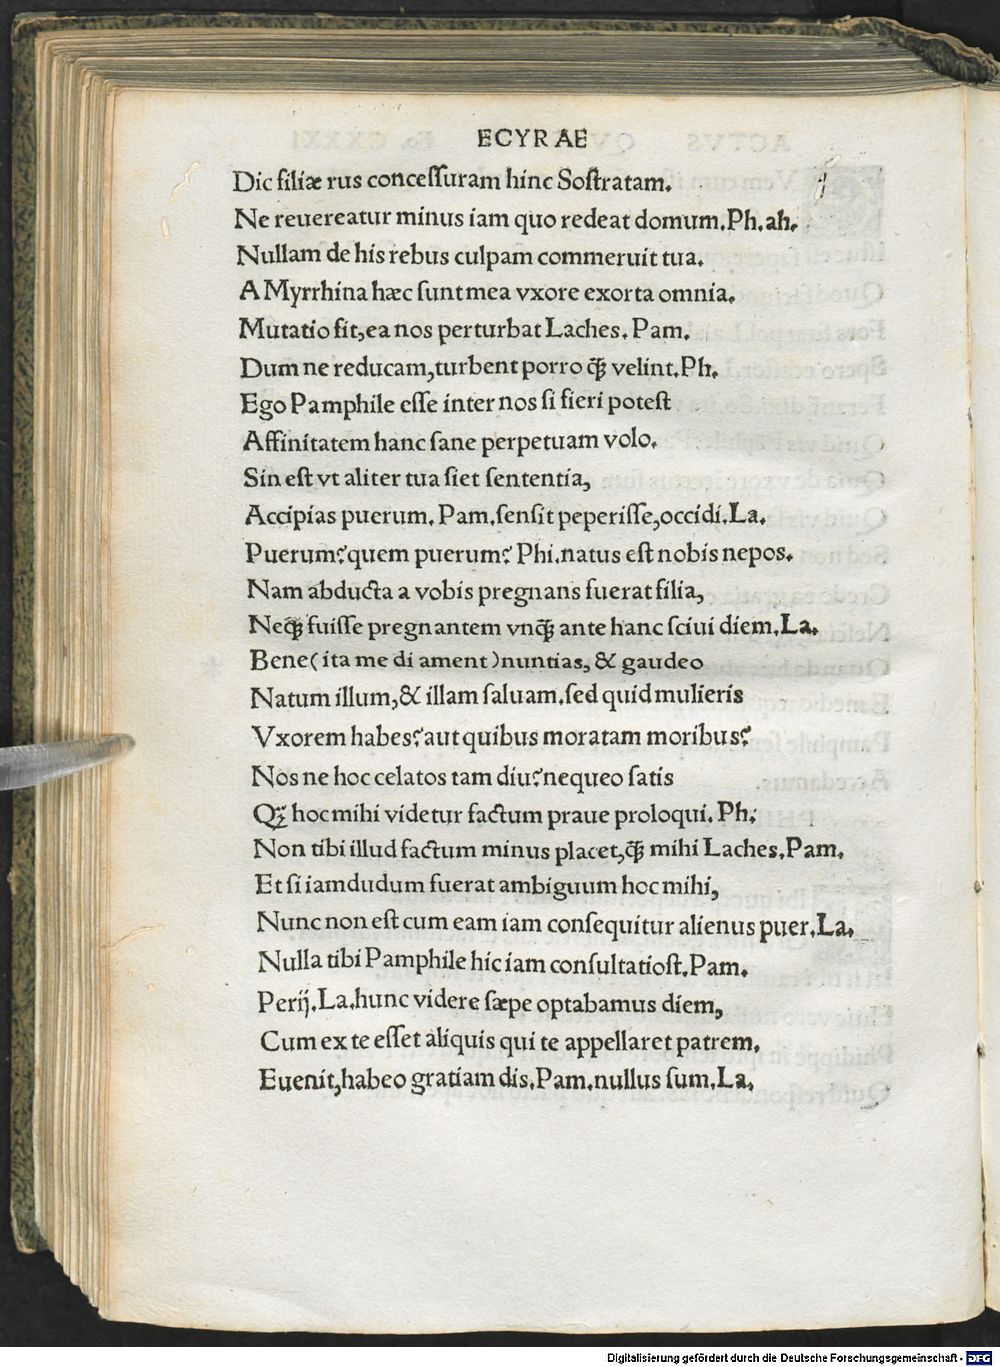 ECYRAE
Dic filiæ rus conceſſuram hinc Soſtratam.
Ne reuereatur minus iam quo redeat domum.Ph.ah.
Nullam de his rebus culpam commeruit tua.
A Myrrhina hæc ſunt mea vxore exorta omnia.
Mutatio fit,ea nos perturbat Laches.Pam.
Dum ne reducam,turbent porro ꝗ̃ velint.Ph.
Ego Pamphile eſſe inter nos ſi fieri poteſt
Affinitatem hanc ſane perpetuam volo.
Sin eſt vt aliter tua ſiet ſententia,
Accipias puerum.Pam.ſenſit peperiſſe,occidi.La.
Puerum?quem puerum?Phi.natus eſt nobis nepos.
Nam abducta a vobis pregnans fuerat filia,
Neqꝫ fuiſſe pregnantem vnꝗ̃ ante hanc ſciui diem.La.
Bene(ita me di ament)nuntias,& gaudeo
Natum illum,& illam ſaluam.ſed quid mulieris
Vxorem habes?aut quibus moratam moribus?
Nos ne hoc celatos tam diu?nequeo ſatis
Qꝫ hoc mihi videtur factum praue proloqui.Ph.
Non tibi illud factum minus placet,ꝗ̃ mihi Laches.Pam.
Et ſi iamdudum fuerat ambiguum hoc mihi,
Nunc non eſt cum eam iam conſequitur alienus puer.La.
Nulla tibi Pamphile hic iam conſultatioſt.Pam.
Perij.La.hunc videre ſæpe optabamus diem,
Cum ex te eſſet aliquis qui te appellaret patrem.
Euenit,habeo gratiam dis.Pam.nullus ſum.La.
Digitalisierung gefördert durch die Deutsche Forschungsgemeinschaft - DFG